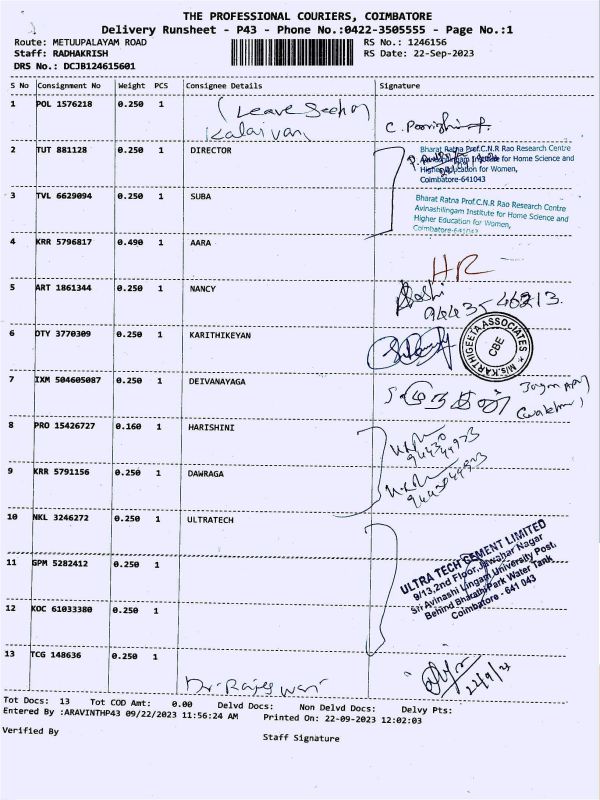 THE PROFESSIONAL COURIERS, COIMBATORE
Delivery Runsheet - P43 - Phone No.:0422-3505555 - Page No.:1
Route: METUUPALAYAM ROAD RS No.: 1246156
Staff: RADHAKRISH RS Date: 22-Sep-2023
DRS No.: DCJB124615601
S No Consignment No Weight PCS Consignee Details Signature
1 POL 1576218 0.250 1 (Leave
Kalaivani
C.
2 TUT 881128 0.250 1 DIRECTOR
Bharat Ratna Prof.C.N.R Rao Research Centre
Avinashilingam Institute for Home Science and
Higher Education for Women,
Coimbatore-641043
3 TVL 6629094 0.250 1 SUBA
Bharat Ratna Prof.C.N.R Rao Research Centre
Avinashilingam Institute for Home Science and
Higher Education for Women,
Coimbatore-641043
4 KRR 5796817 0.490 1 AARA
HR
5 ART 1861344 0.250 1 NANCY
9443546213.
6 DTY 3770309 0.250 1 KARITHIKEYAN
M/s.KARTHIGEETA ASSOCIATES
CBE
7 IXM 504605087 0.250 1 DEIVANAYAGA
8 PRO 15426727 0.160 1 HARISHINI
9 KRR 5791156 0.250 1 DAWRAGA
10 NKL 3246272 0.250 1 ULTRATECH
ULTRA TECH CEMENT LIMITED
9/13,2nd Floor,Jawahar Nagar
Sri Avinashi Lingam University Post,
Behind Bharathi Park Water Tank
Coimbatore - 641 043
11 GPM 5282412 0.250 1
12 KOC 61033380 0.250 1
13 TCG 148636 0.250 1
Dr. Rajeswari
22/9/2
Tot Docs: 13 Tot COD Amt: 0.00 Delvd Docs: Non Delvd Docs: Delvy Pts:
Entered By :ARAVINTHP43 09/22/2023 11:56:24 AM Printed On: 22-09-2023 12:02:03
Verified By
Staff Signature